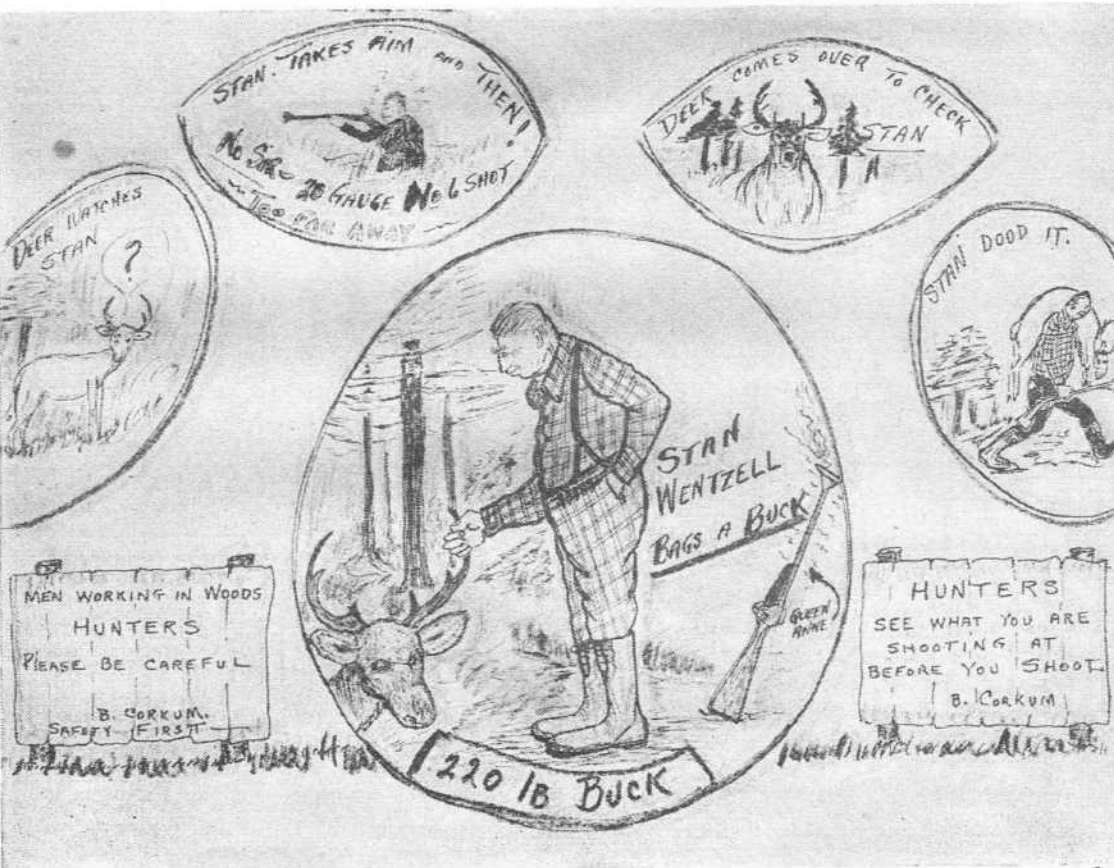 DEER WATCHES
STAN
?
STAN. TAKES AIM AND THEN!
No Sir -
20 GAUGE No 6 SHOT
Too FAR AWAY
DEER COMES OVER TO CHECK
STAN
STAN DOOD IT.
STAN
WENTZELL
BAGS A BUCK
QUEEN
ANNE
220 lB BUCK
MEN WORKING IN WOODS
HUNTERS
PLEASE BE CAREFUL
B. CORKUM.
SAFETY FIRST
HUNTERS
SEE WHAT YOU ARE
SHOOTING AT
BEFORE YOU SHOOT.
B. CORKUM